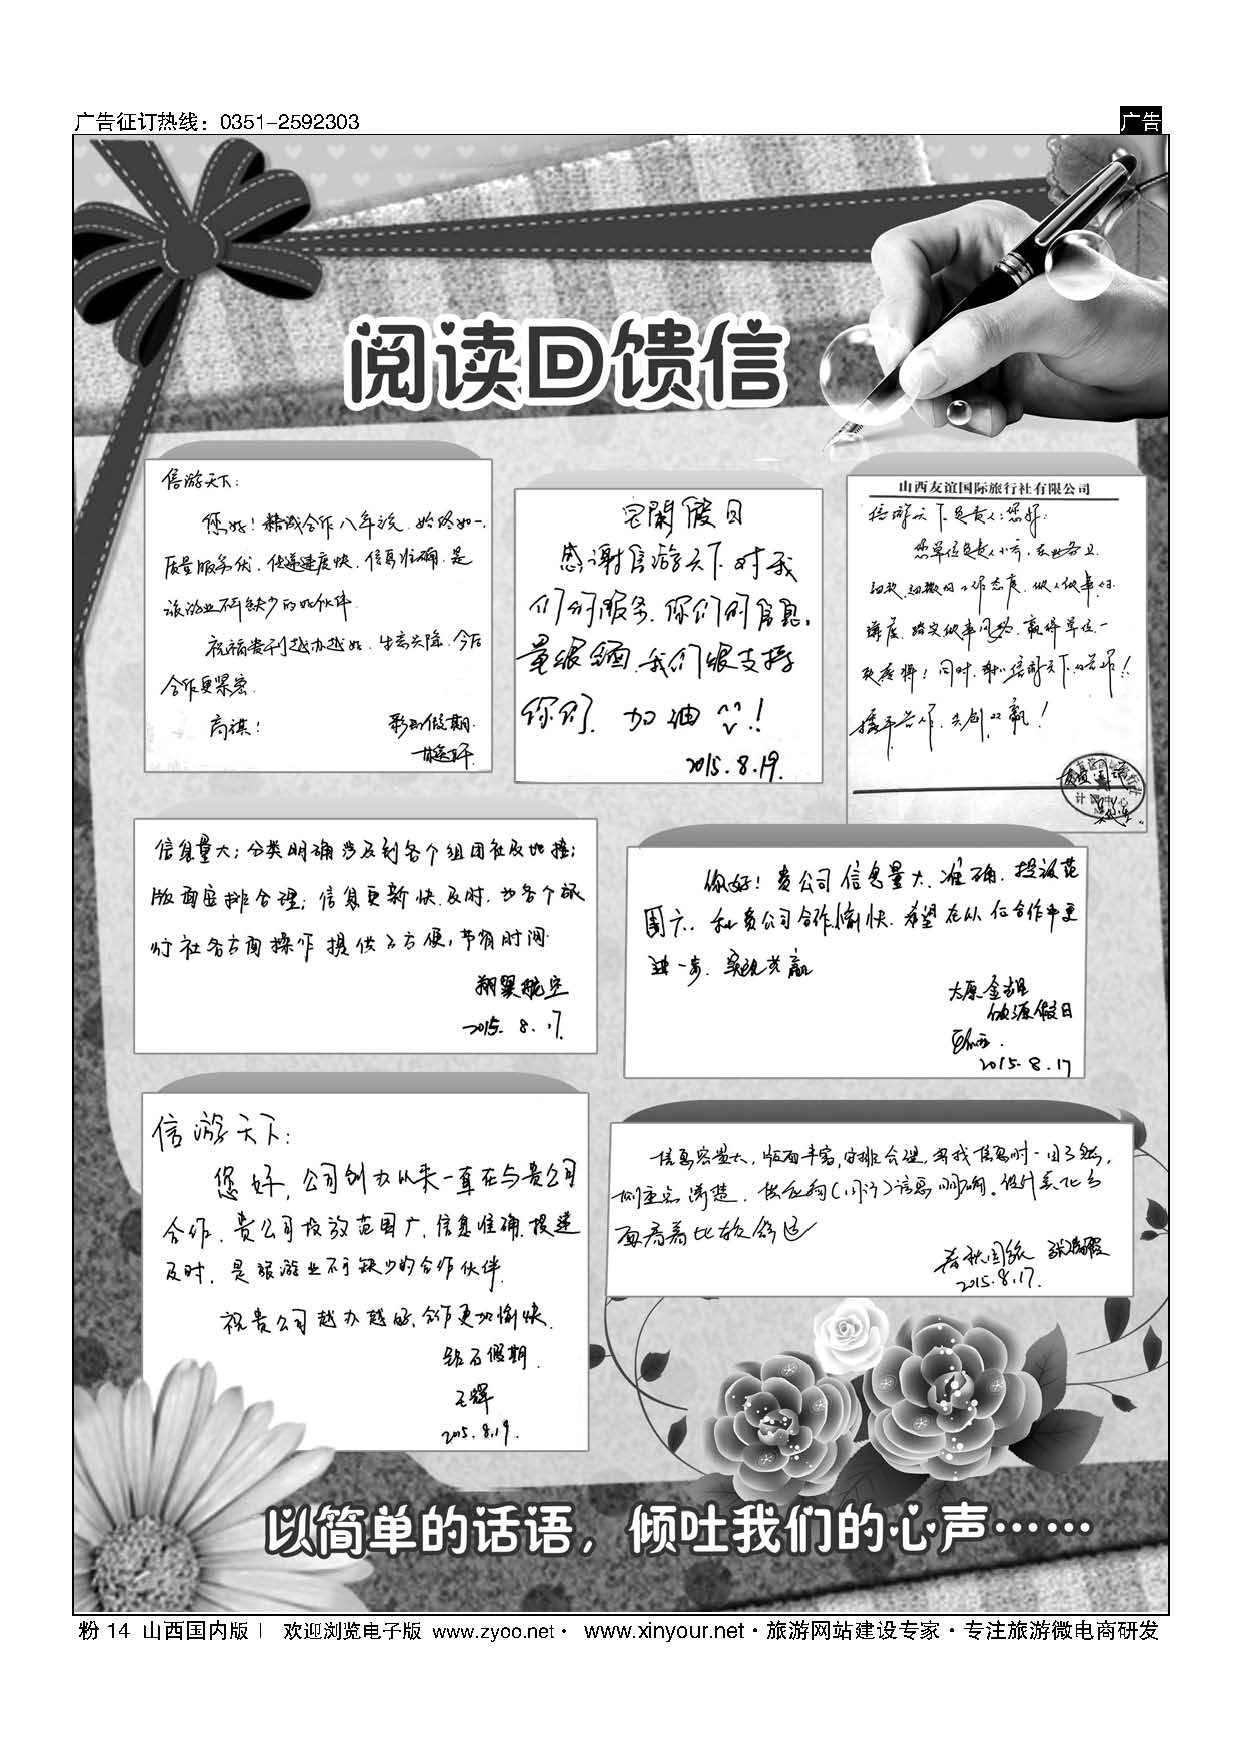 广告征订热线：0351-2592303
广告
阅读回馈信
信游天下：
您好！精诚合作八年说，始终如一.
质量服务优，传递速度快，信息准确，是
旅游业不可缺少的好伙伴.
祝福贵刊越办越好，生意兴隆，今后
合作更紧密.
商祺！
彩虹假期.
宅閑假日
感谢信游天下对我
们的服务，你们的信息.
量很全面，我们很支持
你们，加油！
2015.8.19.
山西友谊国际旅行社有限公司
信游天下负责人：您好：
细致的工作态度，做人做事
踏实做事
同时，谢谢信游天下的合作！！
携手合作，共创双赢！
信息量大；分类明确涉及到各个组团社及地接；
版面安排合理；信息更新快.及时，为各个旅
行社各方面操作提供了方便，节省时间.
翔翼航空
2015.8.17.
你好！贵公司信息量大、准确，投放范
围广，和贵公司合作愉快，希望在以后合作中更
进一步，实现共赢
太原金
假日
2015.8.17
信游天下：
您好，公司创办以来一直在与贵公司
合作，贵公司投放范围广，信息准确，投递
及时，是旅游业不可缺少的合作伙伴.
祝贵公司越办越好，合作更加愉快.
钻石假期.
王辉
2015.8.19.
信息容量大，版面丰富，安排合理，寻找信息时一目了然，
侧重点清楚，
面看着比较舒适
春秋国旅
2015.8.17.
以简单的话语，倾吐我们的心声……
粉 14 山西国内版 | 欢迎浏览电子版 www.zyoo.net· www.xinyour.net·旅游网站建设专家·专注旅游微电商研发